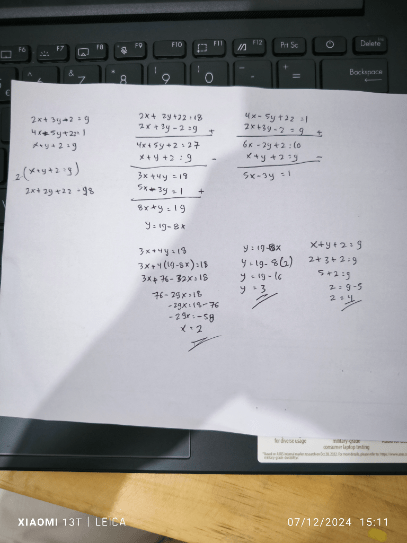 F6
F7
F8
F9
F10
F11
F12
Prt Sc
Delete
&
7
8
9
0
Backspace
2x + 3y - z = 9
4x - 5y + 2z = 1
x + y + z = 9
2 (x + y + z = 9)
2x + 2y + 2z = 98
2x + 2y + 2z = 18
2x + 3y - z = 9 +
4x + 5y + z = 27
x + y + z = 9 -
3x + 4y = 18
5x - 3y = 1 +
8x + y = 19
y = 19 - 8x
4x - 5y + 2z = 1
2x + 3y - z = 9 +
6x - 2y + z = 10
x + y + z = 9 -
5x - 3y = 1
3x + 4y = 18
3x + 4(19 - 8x) = 18
3x + 76 - 32x = 18
76 - 29x = 18
-29x = 18 - 76
-29x = -58
x = 2
y = 19 - 8x
y = 19 - 8(2)
y = 19 - 16
y = 3
x + y + z = 9
2 + 3 + z = 9
5 + z = 9
z = 9 - 5
z = 4
for diverse usage
consumer laptop testing
XIAOMI 13T | LEICA
07/12/2024 15:11